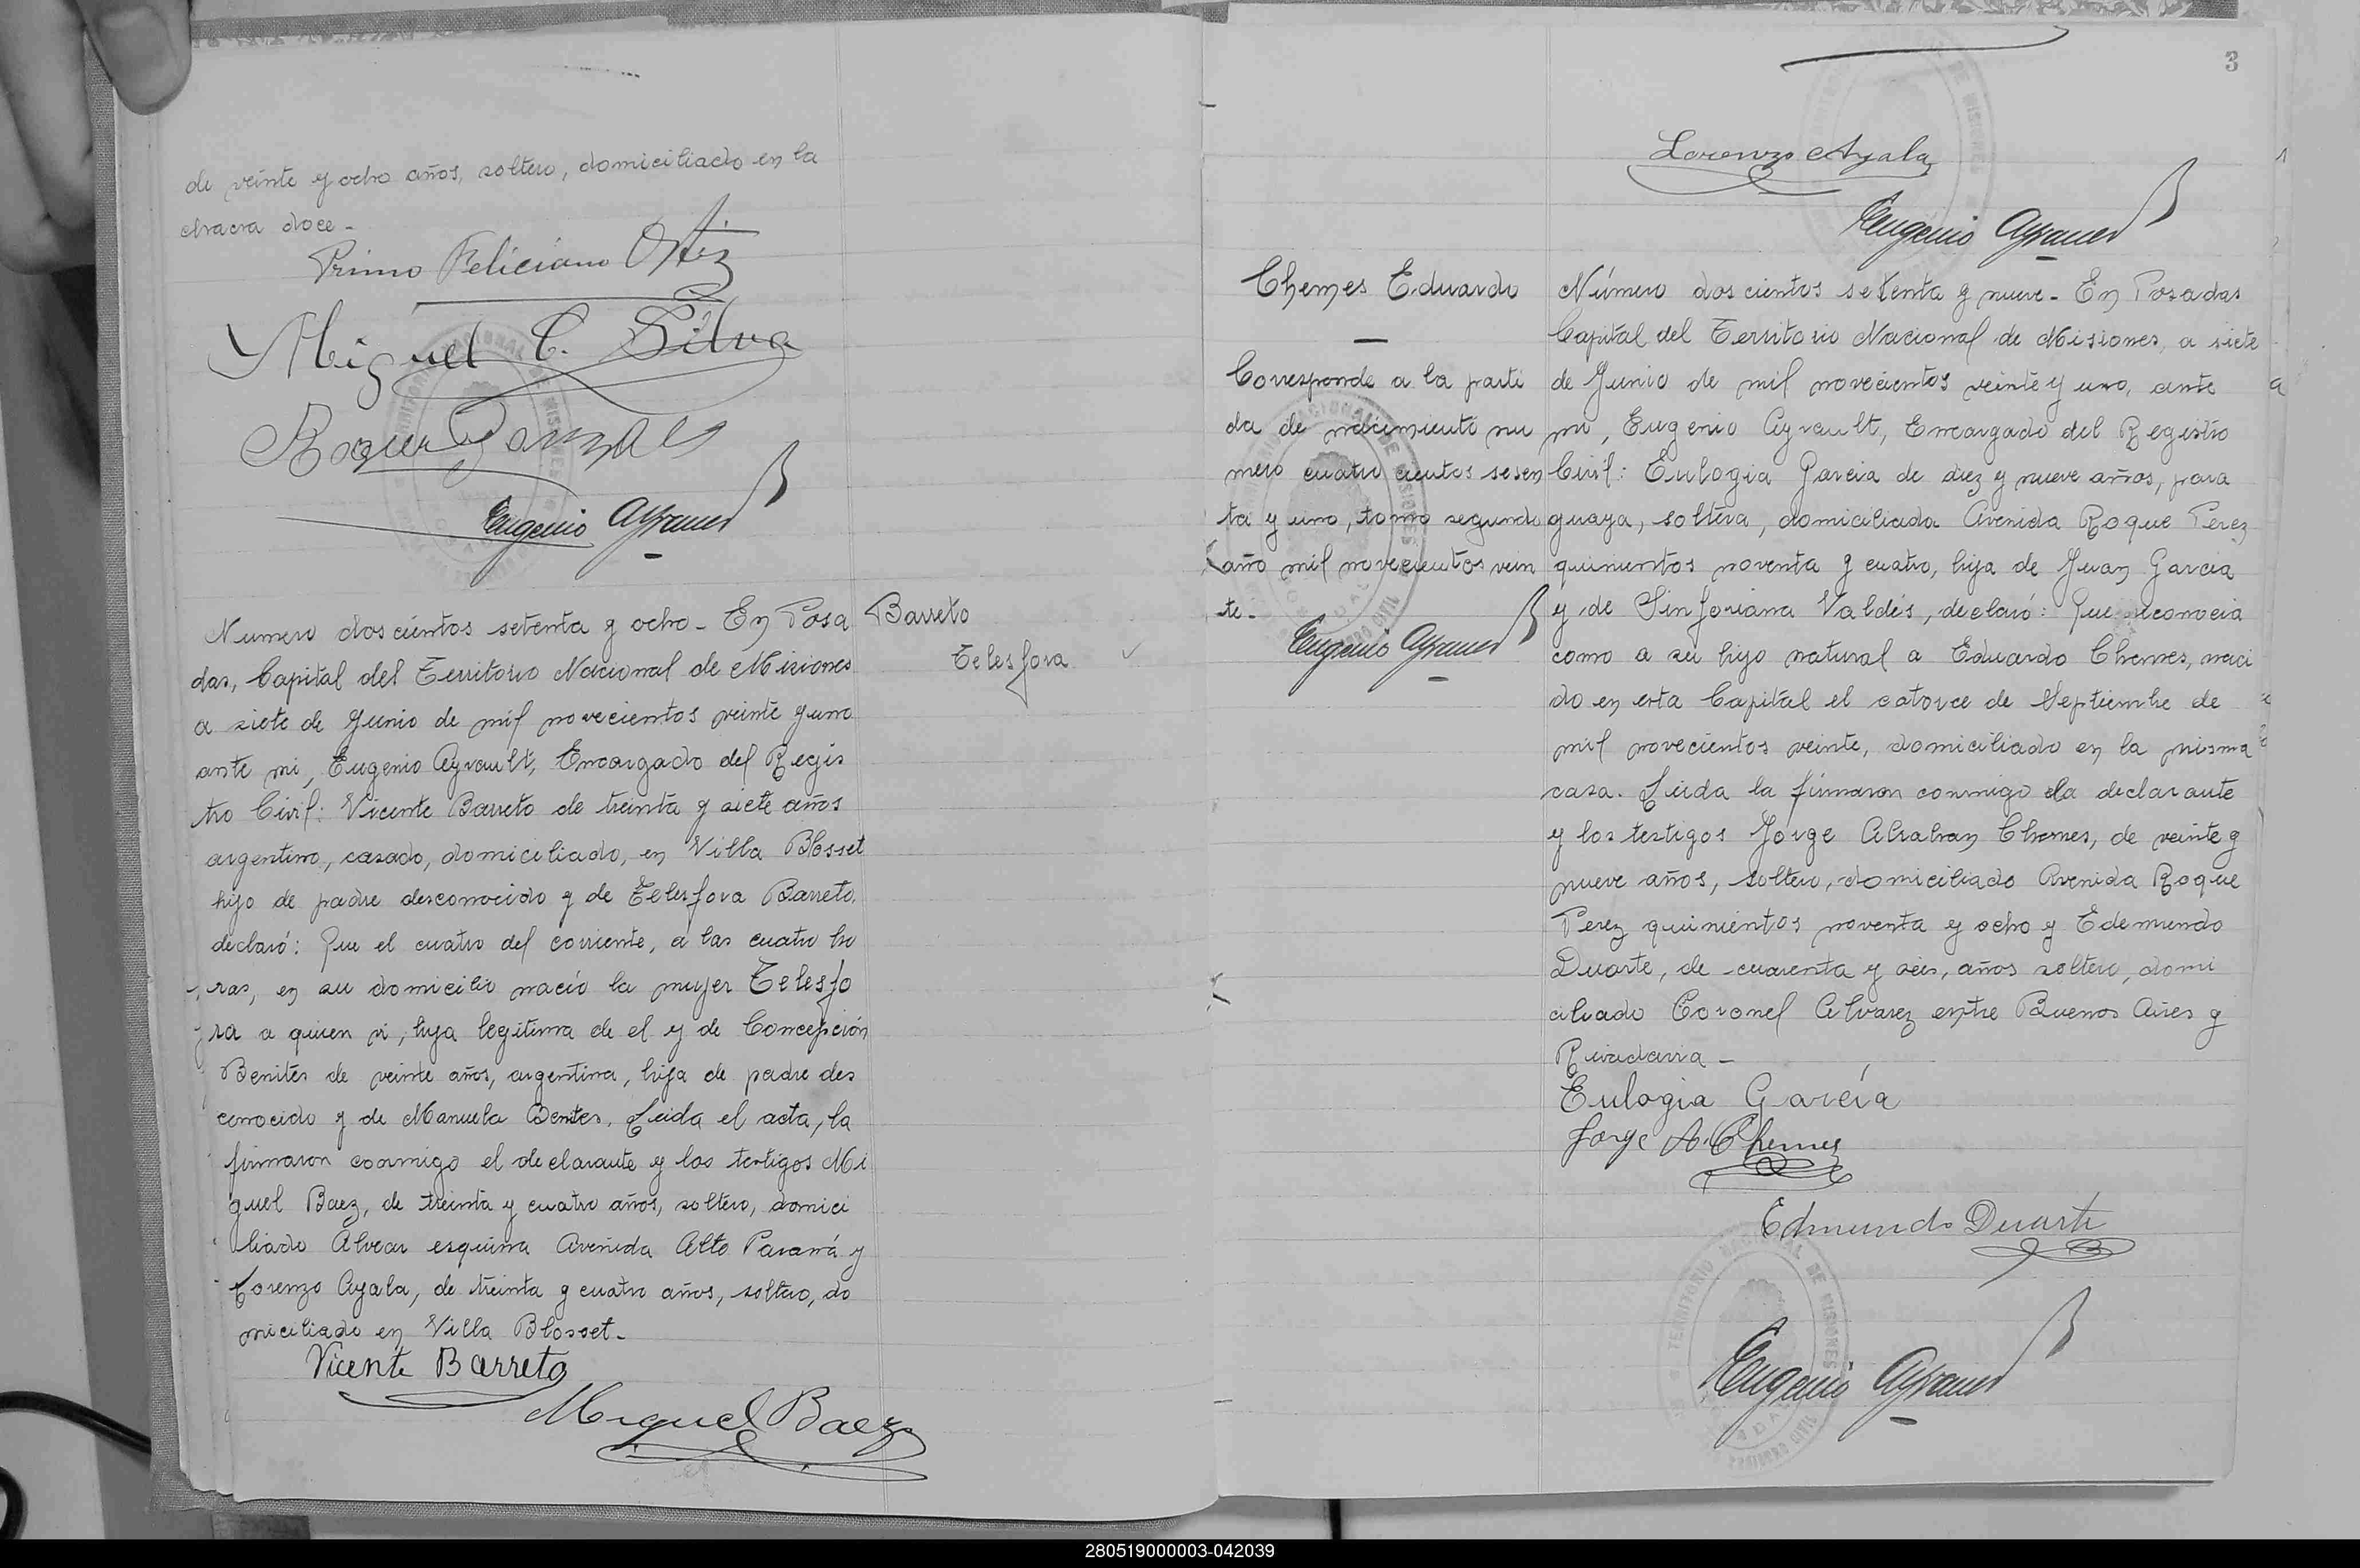 de veinte y ocho años, soltero, domiciliado en la
chacra doce -
Primo Feliciano Ortiz
Miguel C. Silva
Roque Gonzales
Eugenio Ayrault
Numero dos cientos setenta y ocho - En Posa
das, Capital del Territorio Nacional de Misiones
a siete de Junio de mil novecientos veinte y uno
ante mi, Eugenio Ayrault, Encargado del Regis
tro Civil: Vicente Barreto de treinta y siete años
argentino, casado, domiciliado, en Villa Blosset
hijo de padre desconocido y de Telesfora Barreto,
declaró: Que el cuatro del corriente, a las cuatro ho
ras, en su domicilio nació la mujer Telesfo
ra a quien vi, hija legitima de el y de Concepción
Benites de veinte años, argentina, hija de padre des
conocido y de Manuela Benites. Leida el acta, la
firmaron conmigo el declarante y los testigos Mi
guel Baez, de treinta y cuatro años, soltero, domici
liado Alvear esquina Avenida Alto Paraná y
Lorenzo Ayala, de treinta y cuatro años, soltero, do
miciliado en Villa Blosset -
Vicente Barreto
Miguel Baez
Barreto
Telesfora
3
Lorenzo Ayala
Eugenio Ayrault
Chemes Eduardo
Corresponde a la parti
da de nacimiento nu
mero cuatro cientos sesen
ta y uno, tomo segundo
año mil novecientos vein
te -
Eugenio Ayrault
Número dos cientos setenta y nueve - En Posadas
Capital del Territorio Nacional de Misiones, a siete
de Junio de mil novecientos veinte y uno, ante
mi, Eugenio Ayrault, Encargado del Registro
Civil: Eulogia Garcia de diez y nueve años, para
guaya, soltera, domiciliada Avenida Roque Perez
quinientos noventa y cuatro, hija de Juan Garcia
y de Sinforiana Valdés, declaró: Que reconocia
como a su hijo natural a Eduardo Chemes, naci
do en esta Capital el catorce de Septiembre de
mil novecientos veinte, domiciliado en la misma
casa. Leida la firmaron conmigo la declarante
y los testigos Jorge Abrahan Chemes, de veinte y
nueve años, soltero, domiciliado Avenida Roque
Perez quinientos noventa y ocho y Edemundo
Duarte, de cuarenta y seis, años soltero, domi
ciliado Coronel Alvarez entre Buenos Aires y
Rivadavia -
Eulogia García
Jorge A. Chemes
Edmundo Duarte
TERRITORIO NACIONAL DE MISIONES
REGISTRO CIVIL
Eugenio Ayrault
280519000003-042039